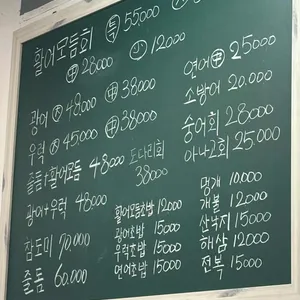 활어모듬회 特 55000
中 28000 小 12000
광어 大 48000 中 38000
우럭 大 45000 中 38000
즐돔+활어모듬 48000
도다리회 38000
광어+우럭 48000
참도미 70,000
즐돔 60.000
활어모둠초밥 12000
광어초밥 15000
우럭초밥 15000
연어초밥 15000
연어 中 25000
소방어 20.000
숭어회 28000
아나고회 25.000
멍개 10,000
개불 12000
산낙지 15000
해삼 12000
전복 15000